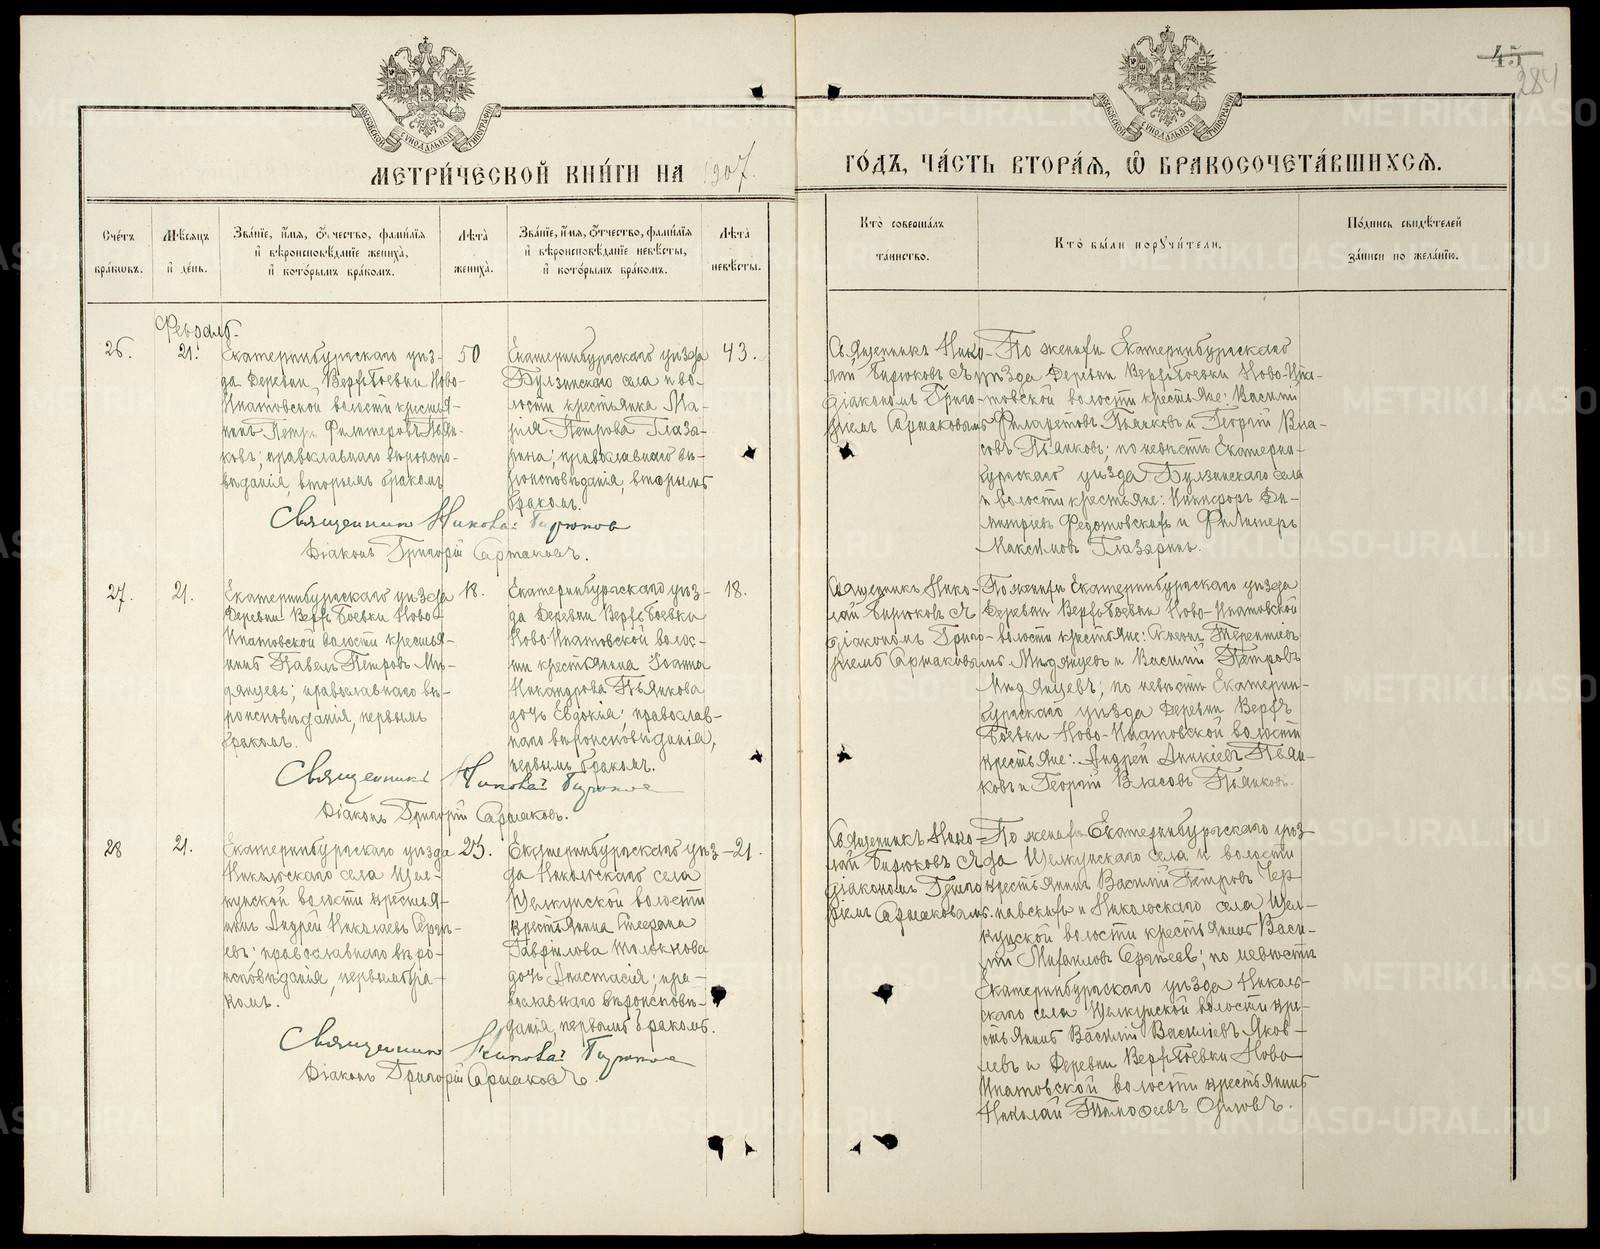 45
284
МЕТРИ́ЧЕСКОЙ КНИ́ГИ НА 1907.
ГО́ДЪ, ЧА́СТЬ ВТОРА́Я, Ѡ БРАКОСОЧЕТА́ВШИХСЯ.
Сче́тъ бра́ковъ.
Мѣ́сяцъ и҆ де́нь.
Зва́нїе, и҆́мя, ѻ҆́тчество, фами́лїя
и҆ вѣроисповѣ́данїе жениха̀,
и҆ кото́рымъ бра́комъ.
Лѣ́та жениха̀.
Зва́нїе, и҆́мя, ѻ҆́тчество, фами́лїя
и҆ вѣроисповѣ́данїе невѣ́сты,
и҆ кото́рымъ бра́комъ.
Лѣ́та невѣ́сты.
Кто̀ соверша́лъ
та́инство.
Кто̀ бы́ли поручи́тели.
По́дпись свидѣ́телей
за́писи по жела́нїю.
Февраль.
26.
21.
Екатеринбургскаго уѣз-
да Деревни Верхъ Боевки Ново-
Ипатовской волости крестья-
нинъ Петръ Филитеровъ Пьян-
ковъ; православнаго вѣроиспо-
вѣданія, вторымъ бракомъ
50
Екатеринбургскаго уѣзда
Булзинскаго села и во-
лости крестьянка Ма-
рія Петрова Глазы-
рина; православнаго вѣ-
роисповѣданія, вторымъ
бракомъ.
43.
Священникъ Николай Бирюковъ
Діаконъ Григорій Сармаковъ.
Священникъ Нико-
лай Бирюковъ съ
діакономъ Григо-
ріемъ Сармаковымъ
По женихѣ Екатеринбургскаго
уѣзда Деревни Верхъ Боевки Ново-Ипа-
товской волости крестьяне: Василій
Филаретовъ Пьянковъ и Георгій Вла-
совъ Пьянковъ; по невѣстѣ Екатерин-
бургскаго уѣзда Булзинскаго села
и волости крестьяне: Никифоръ Ди-
митріевъ Федотовскихъ и Филитеръ
Максимовъ Глазыринъ.
27.
21.
Екатеринбургскаго уѣзда
Деревни Верхъ Боевки Ново-
Ипатовской волости крестья-
нинъ Павелъ Петровъ Ми-
дянцевъ; православнаго вѣ-
роисповѣданія, первымъ
бракомъ.
18.
Екатеринбургскаго уѣз-
да Деревни Верхъ Боевки
Ново-Ипатовской волос-
ти крестьянина Іоанна
Никандрова Пьянкова
дочь Евдокія; православ-
наго вѣроисповѣданія,
первымъ бракомъ.
18.
Священникъ Николай Бирюковъ
Діаконъ Григорій Сармаковъ.
Священникъ Нико-
лай Бирюковъ съ
діакономъ Григо-
ріемъ Сармаковымъ
По женихѣ Екатеринбургскаго уѣзда
Деревни Верхъ Боевки Ново-Ипатовской
волости крестьяне: Терентіевъ
Мидянцевъ и Василій Петровъ
Мидянцевъ; по невѣстѣ Екатерин-
бургскаго уѣзда Деревни Верхъ
Боевки Ново-Ипатовской волости
крестьяне: Андрей Аникіевъ Пьян-
ковъ и Георгій Власовъ Пьянковъ.
28
21.
Екатеринбургскаго уѣзда
Никольскаго села Щел-
кунской волости крестья-
нинъ Андрей Николаевъ Сергѣ-
евъ; православнаго вѣро-
исповѣданія, первымъ бра-
комъ.
25.
Екатеринбургскаго уѣз-
да Никольскаго села
Щелкунской волости
крестьянина Стефана
Гаврілова Толокнова
дочь Анастасія; пра-
вославнаго вѣроисповѣ-
данія, первымъ бракомъ.
21.
Священникъ Николай Бирюковъ
Діаконъ Григорій Сармаковъ.
Священникъ Нико-
лай Бирюковъ съ
діакономъ Григо
ріемъ Сармаковымъ.
По женихѣ Екатеринбургскаго уѣз-
да Щелкунскаго села и волости
крестьянинъ Василій Петровъ Чер-
павскихъ и Никольскаго села Щел-
кунской волости крестьянинъ Васи-
лій Михаиловъ Сергѣевъ; по невѣстѣ
Екатеринбургскаго уѣзда Николь-
скаго села Щелкунской волости кре-
стьянинъ Василій Василіевъ Яков-
левъ и Деревни Верхъ Боевки Ново
Ипатовской волости крестьянинъ
Николай Тимофеевъ Орловъ.